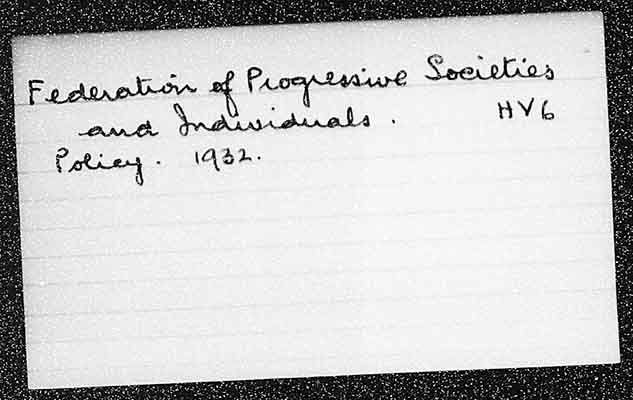 Federation of Progressive Societies
and Individuals. HV6
Policy. 1932.